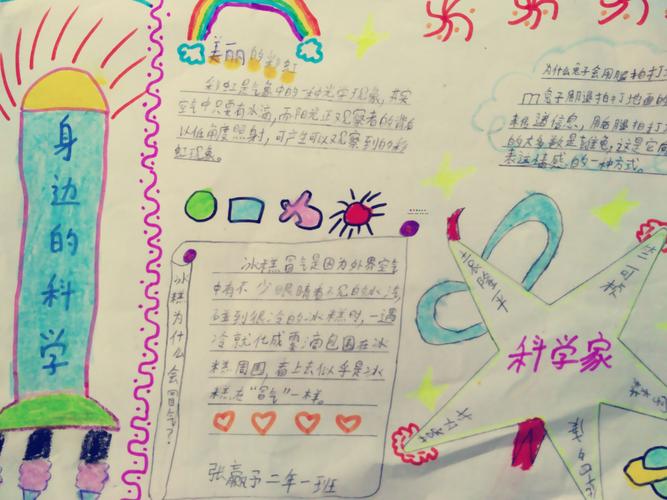 身边的科学
美丽的彩虹
彩虹是气象中的一种光学现象,其实
空气中只要有水滴,而阳光正以观察者的背后
以低角度照射,可产生可以观察到的彩
虹现象。
为什么兔子会用腿拍打
兔子用腿拍打地面的
来传递信息,用后腿拍打
的大多数是雄兔,这是它们
表达情感的一种方式。
冰糕为什么会冒气?
冰糕冒气是因为外界空气
中有不少眼睛看不见的水汽
碰到很冷的冰糕时,一遇
冷就化成雾滴包围在冰
糕周围,看上去似乎是冰
糕在"冒气"一样。
张赢予二年一班
科学家
袁隆平
竺可桢